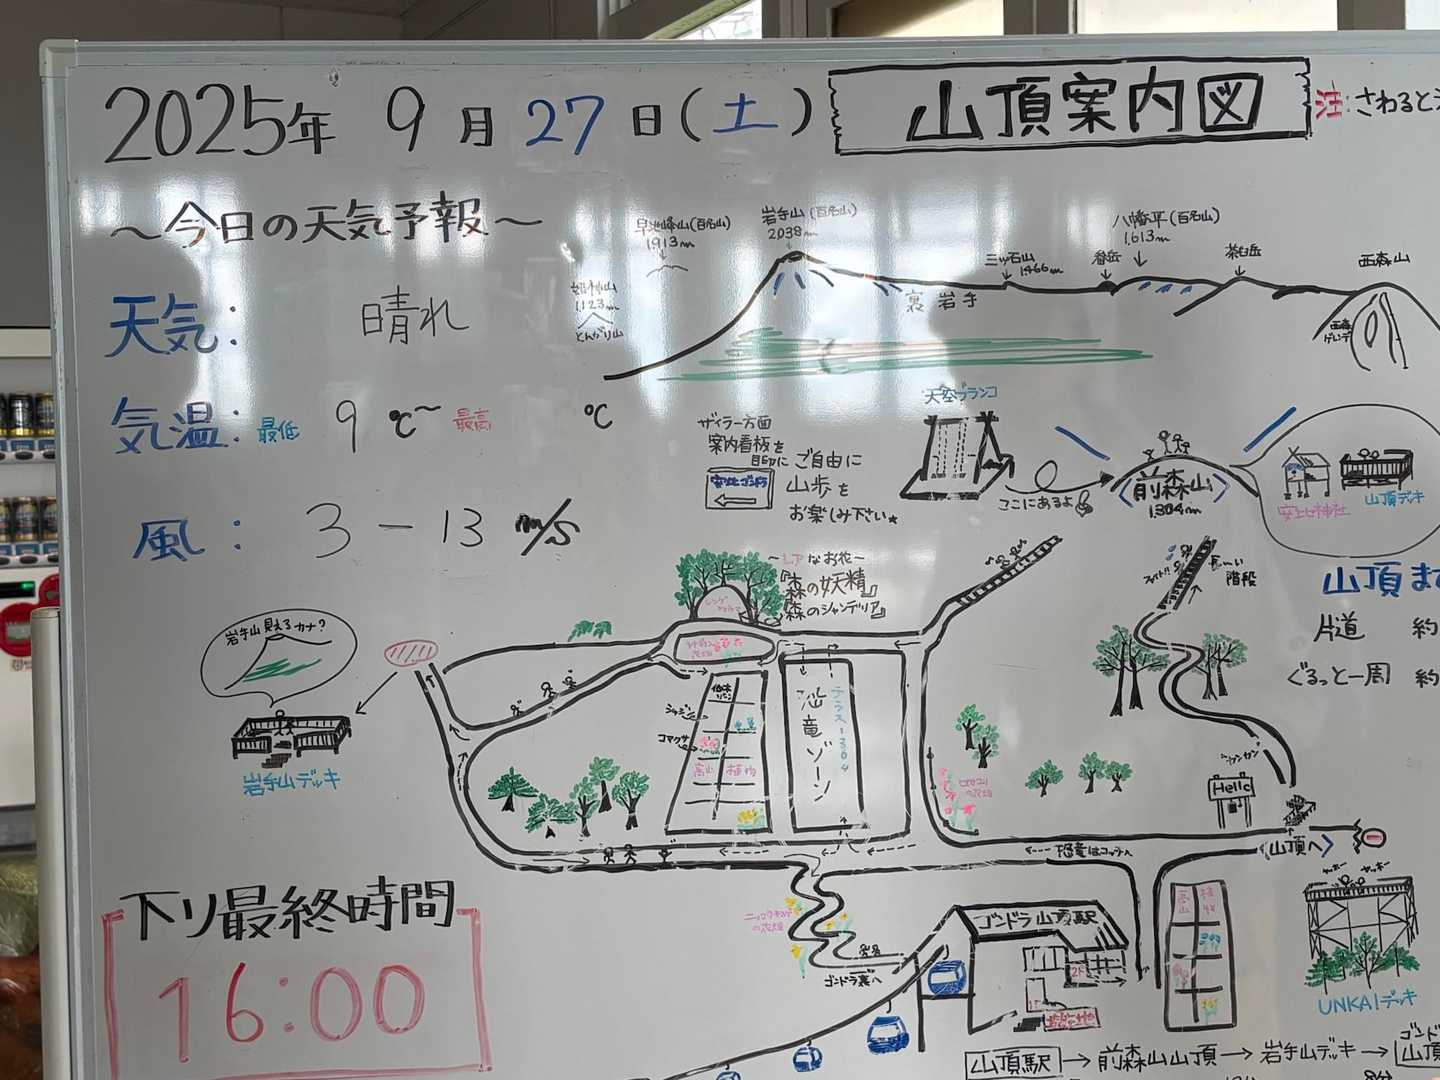 2025年 9月 27日(土)
山頂案内図
注:さわると
～今日の天気予報～
天気: 晴れ
気温: 最低 9℃～最高 ℃
風: 3－13 m/s
早池峰山(百名山)
1913m
岩手山(百名山)
2038m
姫神山
1,123m
とんがり山
三ッ石山
1466m
八幡平(百名山)
1,613m
茶臼岳
西森山
裏岩手
西森
ゲレンデ
天空ブランコ
ここにあるよ
前森山
1,304m
安比神社
山頂デッキ
ザイラー方面
案内看板を
目印に ご自由に
山歩を
お楽しみ下さい★
安比ゴンドラ
～レアなお花～
『森の妖精』
『森のシャンデリア』
長〜い
階段
山頂ま
片道 約
ぐるっと一周 約
岩手山見えるカナ?
岩手山デッキ
コマクサ
高山植物
恐竜ゾーン
テラス1304
Hello
恐竜はコッチへ
山頂へ
ゴンドラ裏へ
ゴンドラ山頂駅
2F
1F
高山植物
ヤッホー ヤッホー
UNKAIデッキ
下り最終時間
16:00
山頂駅→前森山山頂→岩手山デッキ→
ゴンド
山頂